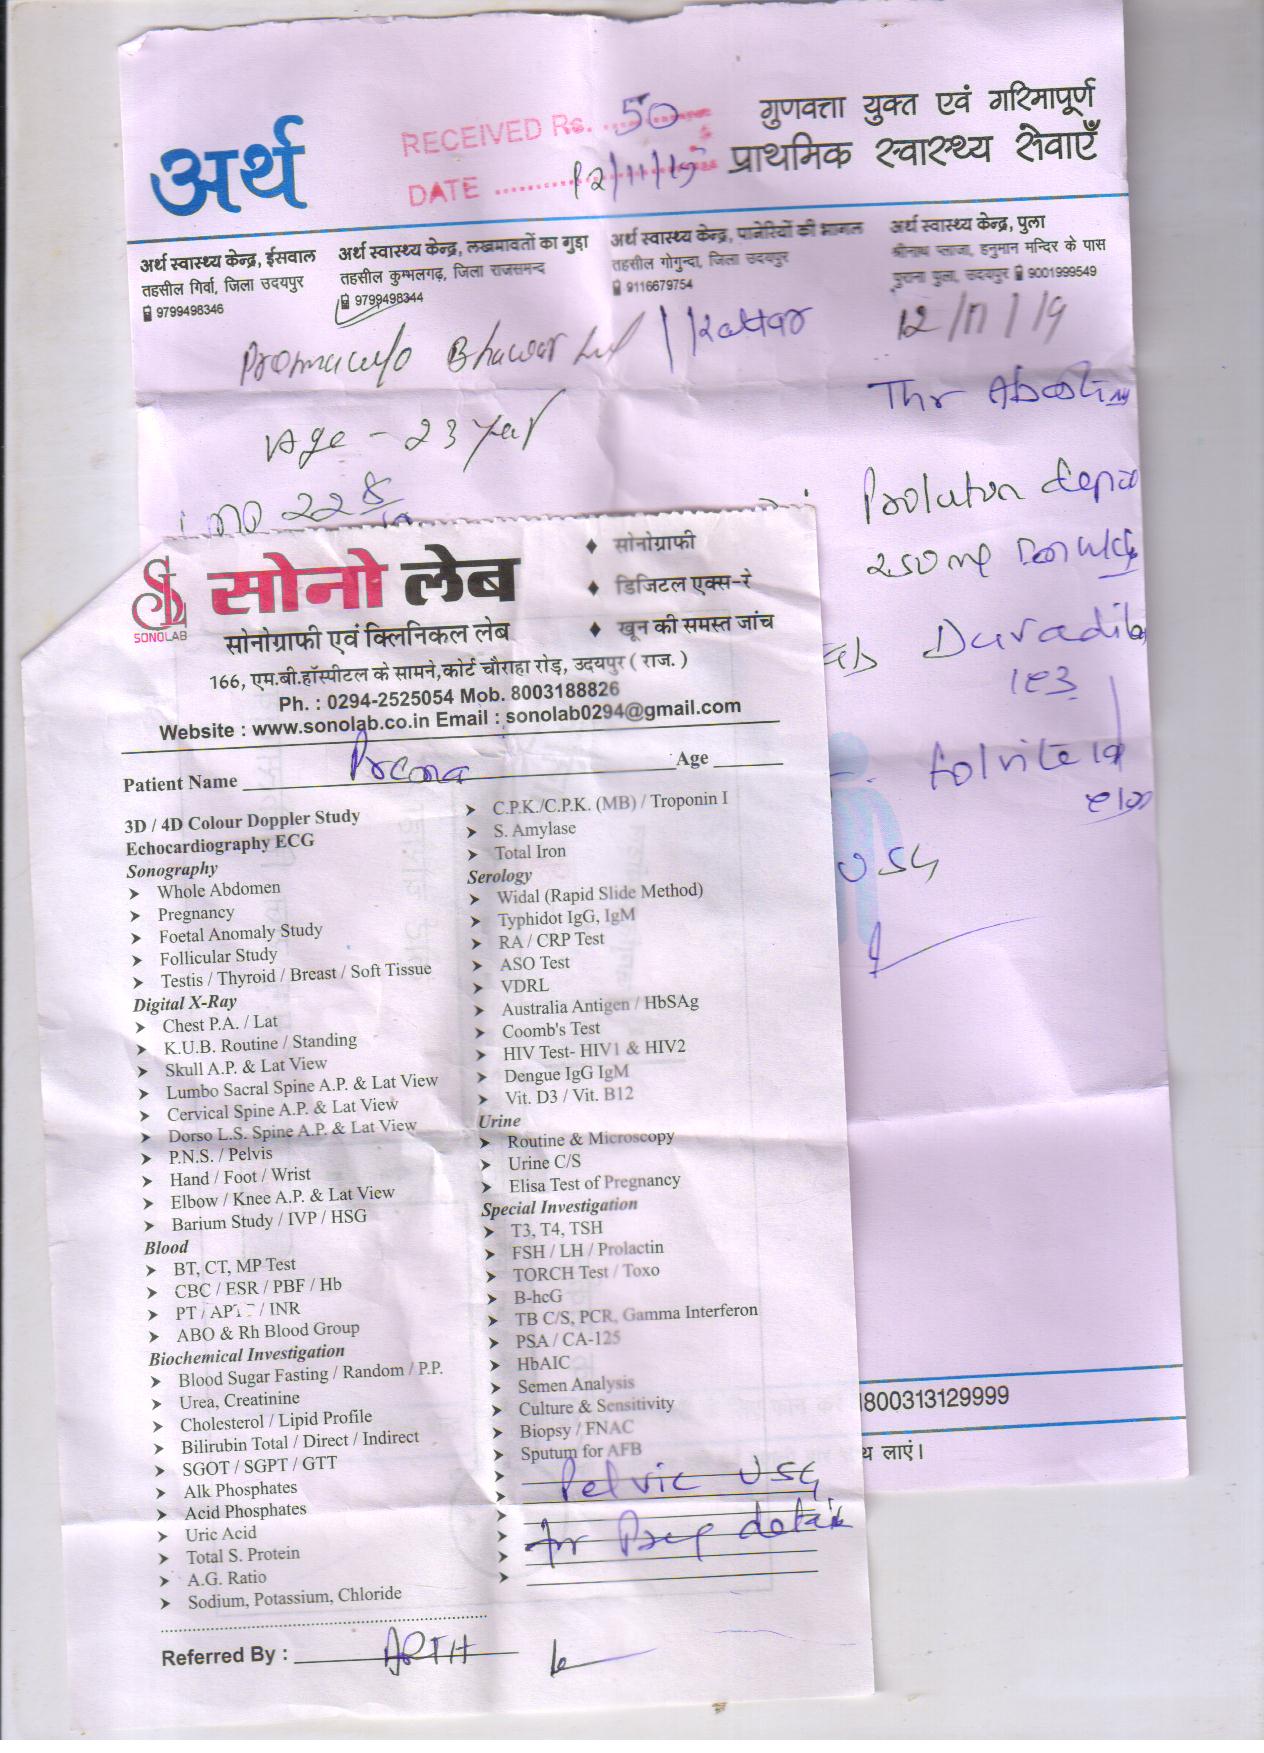 अर्थ
RECEIVED Rs. 50
DATE 12/11/19
गुणवत्ता युक्त एवं गरिमापूर्ण
प्राथमिक स्वास्थ्य सेवाएँ
अर्थ स्वास्थ्य केन्द्र, ईसवाल
तहसील गिर्वा, जिला उदयपुर
9799498346
अर्थ स्वास्थ्य केन्द्र, लखमावतों का गुडा
तहसील कुम्भलगढ़, जिला राजसमन्द
9799498344
अर्थ स्वास्थ्य केन्द्र, पानेरियों की भागल
तहसील गोगुन्दा, जिला उदयपुर
9116679754
अर्थ स्वास्थ्य केन्द्र, पुला
श्रीनाथ प्लाजा, हनुमान मन्दिर के पास
पुराना पुला, उदयपुर 9001999549
w/o Bhawar Lal
12/11/19
Age - 23 year
Thr
LMP 22 8
Proluton depo
250 mg
Duvadila
1 e 3
Folvite
USG
SL
SONOLAB
सोनो लेब
सोनोग्राफी एवं क्लिनिकल लेब
♦ सोनोग्राफी
♦ डिजिटल एक्स-रे
♦ खून की समस्त जांच
166, एम.बी.हॉस्पीटल के सामने,कोर्ट चौराहा रोड़, उदयपुर ( राज. )
Ph. : 0294-2525054 Mob. 8003188826
Website : www.sonolab.co.in Email : sonolab0294@gmail.com
Patient Name Prema Age
3D / 4D Colour Doppler Study
Echocardiography ECG
Sonography
➤ Whole Abdomen
➤ Pregnancy
➤ Foetal Anomaly Study
➤ Follicular Study
➤ Testis / Thyroid / Breast / Soft Tissue
Digital X-Ray
➤ Chest P.A. / Lat
➤ K.U.B. Routine / Standing
➤ Skull A.P. & Lat View
➤ Lumbo Sacral Spine A.P. & Lat View
➤ Cervical Spine A.P. & Lat View
➤ Dorso L.S. Spine A.P. & Lat View
➤ P.N.S. / Pelvis
➤ Hand / Foot / Wrist
➤ Elbow / Knee A.P. & Lat View
➤ Barium Study / IVP / HSG
Blood
➤ BT, CT, MP Test
➤ CBC / ESR / PBF / Hb
➤ PT / APTT / INR
➤ ABO & Rh Blood Group
Biochemical Investigation
➤ Blood Sugar Fasting / Random / P.P.
➤ Urea, Creatinine
➤ Cholesterol / Lipid Profile
➤ Bilirubin Total / Direct / Indirect
➤ SGOT / SGPT / GTT
➤ Alk Phosphates
➤ Acid Phosphates
➤ Uric Acid
➤ Total S. Protein
➤ A.G. Ratio
➤ Sodium, Potassium, Chloride
➤ C.P.K./C.P.K. (MB) / Troponin I
➤ S. Amylase
➤ Total Iron
Serology
➤ Widal (Rapid Slide Method)
➤ Typhidot IgG, IgM
➤ RA / CRP Test
➤ ASO Test
➤ VDRL
➤ Australia Antigen / HbSAg
➤ Coomb's Test
➤ HIV Test- HIV1 & HIV2
➤ Dengue IgG IgM
➤ Vit. D3 / Vit. B12
Urine
➤ Routine & Microscopy
➤ Urine C/S
➤ Elisa Test of Pregnancy
Special Investigation
➤ T3, T4, TSH
➤ FSH / LH / Prolactin
➤ TORCH Test / Toxo
➤ B-hcG
➤ TB C/S, PCR, Gamma Interferon
➤ PSA / CA-125
➤ HbAIC
➤ Semen Analysis
➤ Culture & Sensitivity
➤ Biopsy / FNAC
➤ Sputum for AFB
Pelvic USG
for Preg details
Referred By : ARTH
1800313129999
थ लाएं।